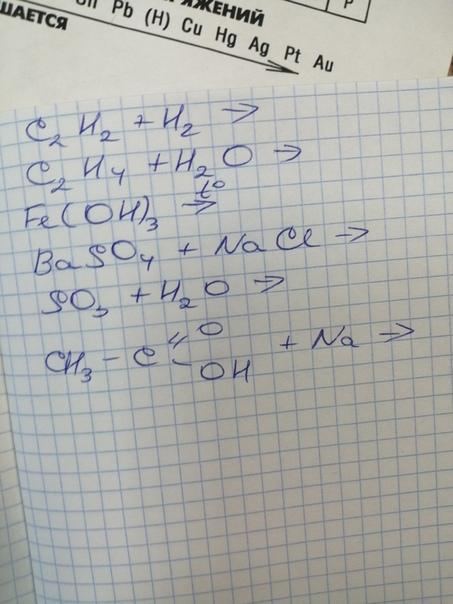 ЯЖЕНИЙ
ШАЕТСЯ
Pb (H) Cu Hg Ag Pt Au
P
C₂H₂ + H₂ →
C₂H₄ + H₂O →
Fe(OH)₃ t° →
BaSO₄ + NaCl →
SO₃ + H₂O →
O
CH₃ - C + Na →
OH